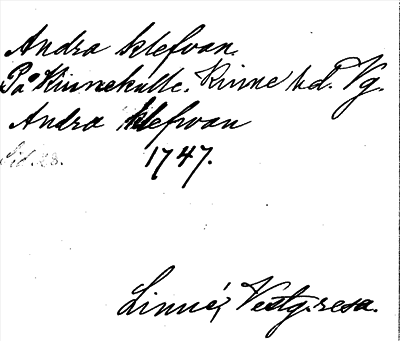 Andra klefvan.
På Kinnekulle. Kinne hd. Vg.
Andra klefvan
Sid. 23. 1747.
Linné, Vestg. resa.